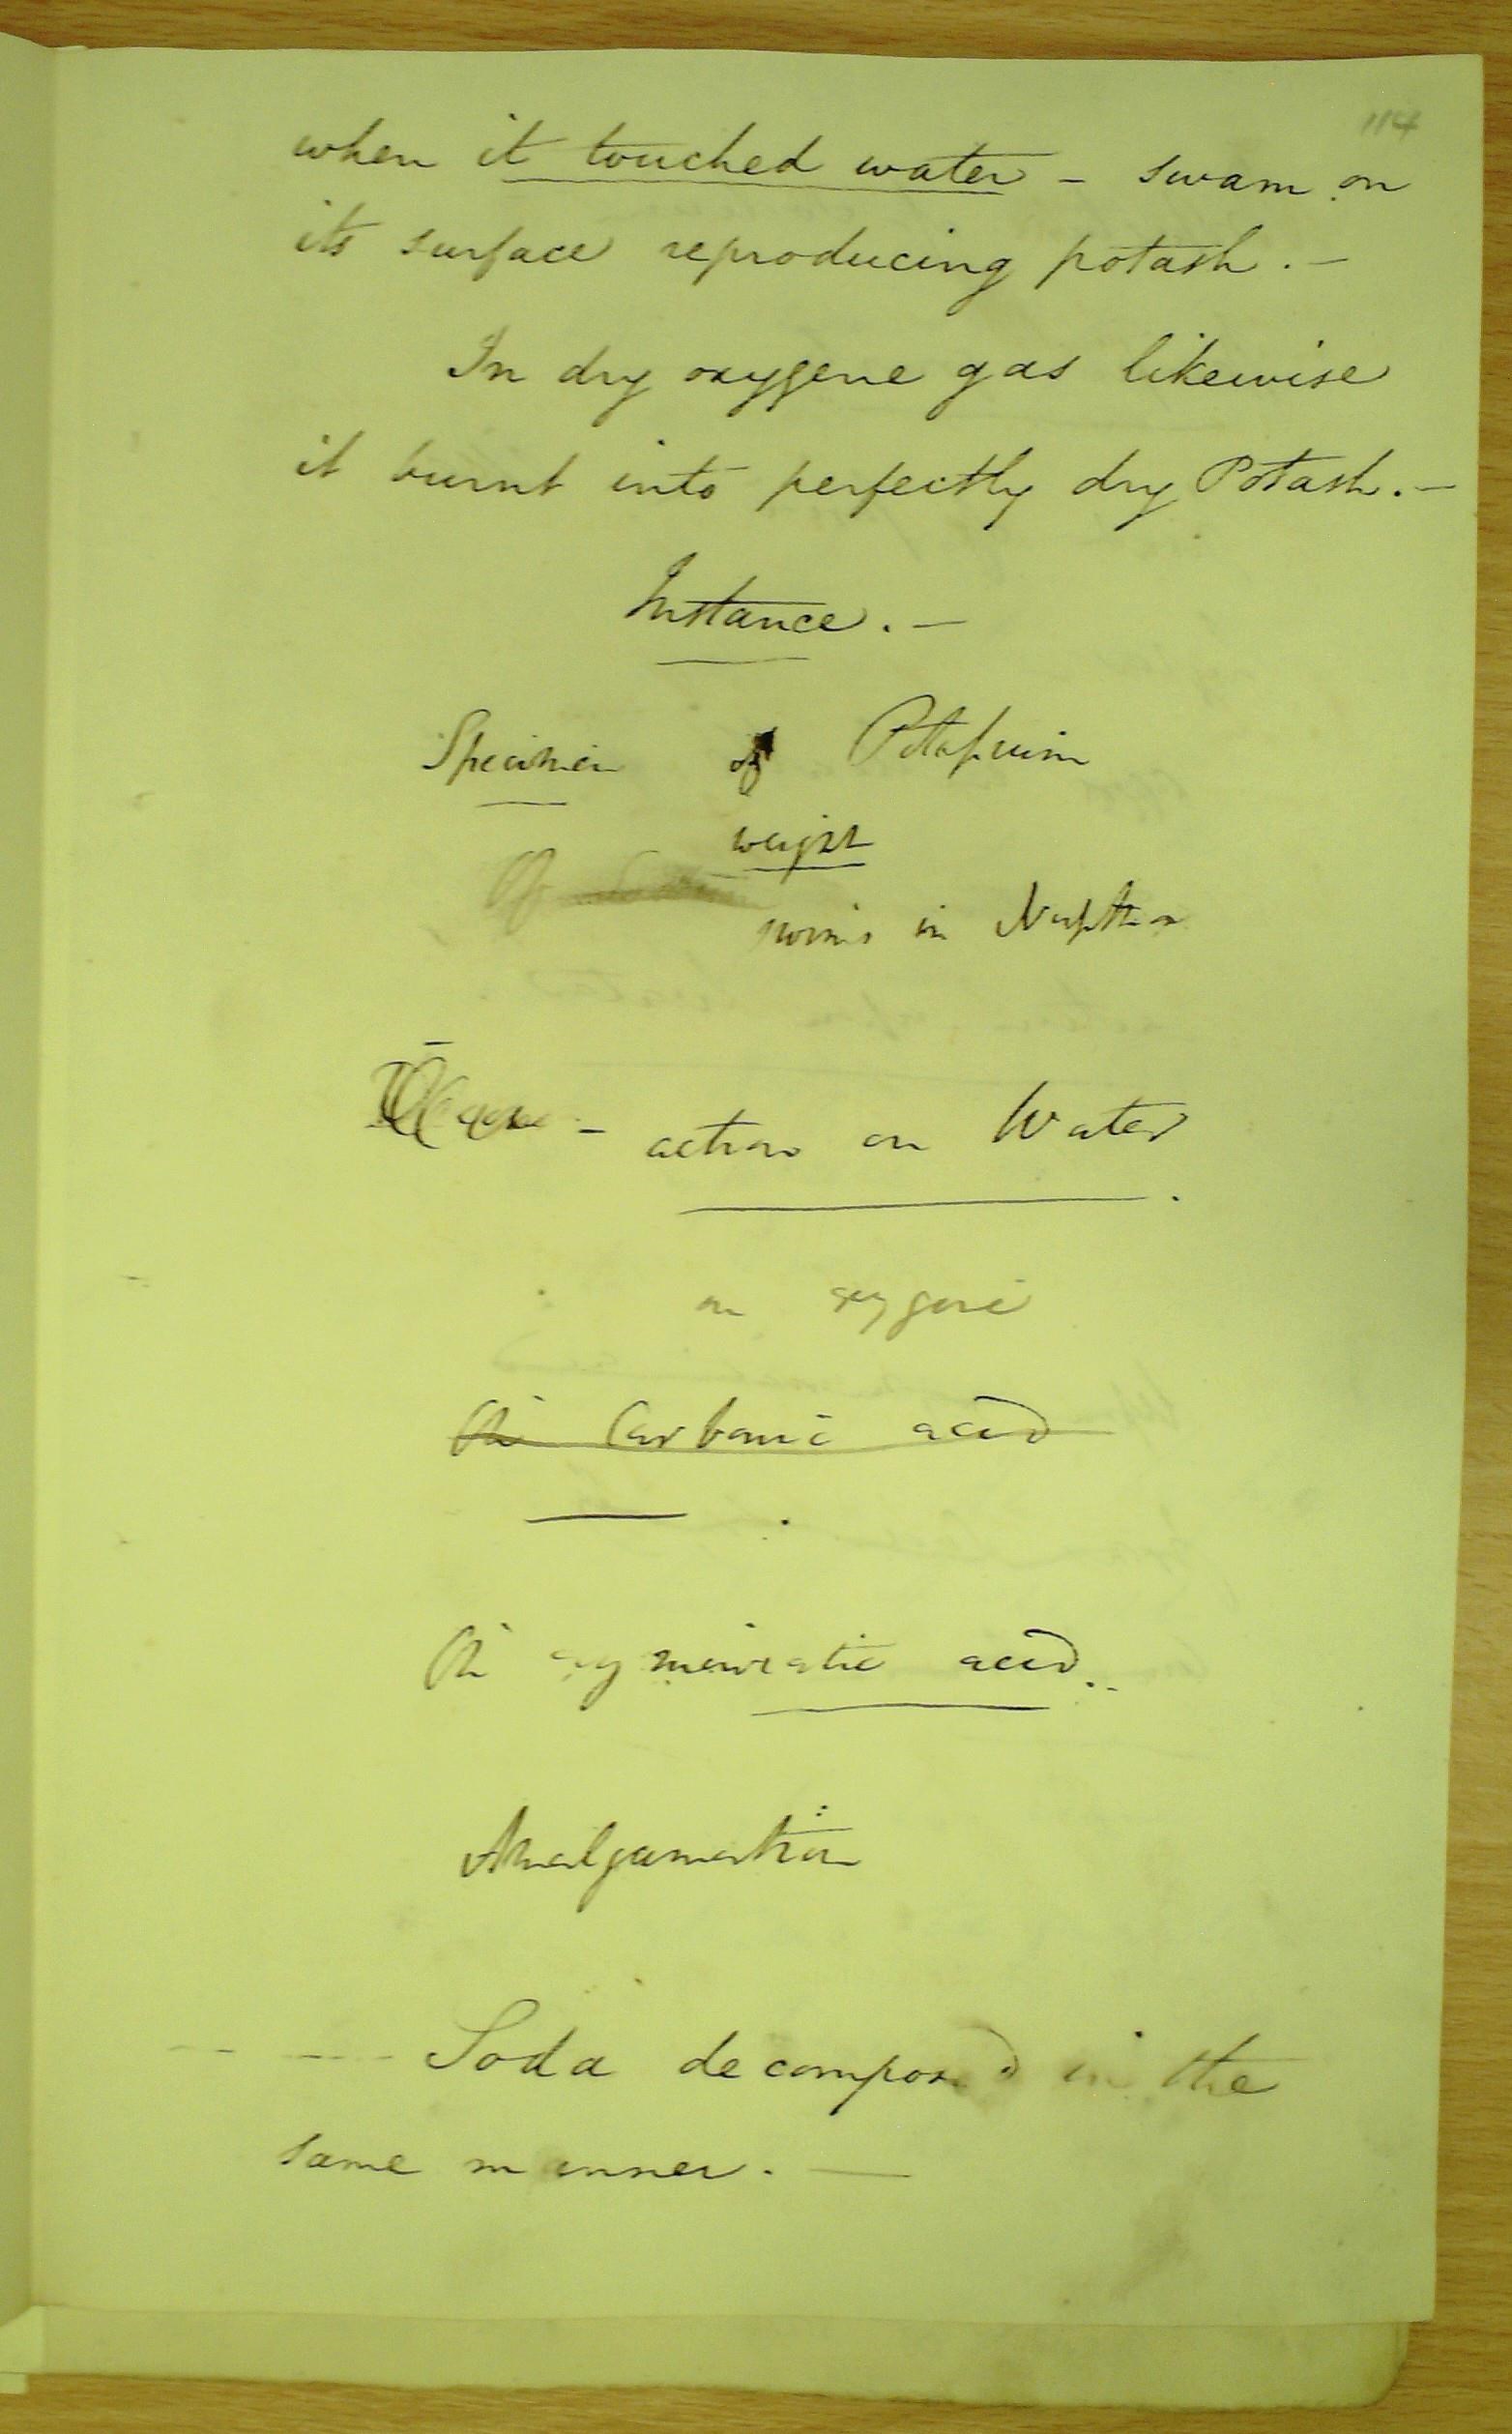 114
when it touched water - swam on
its surface reproducing potash. -
In dry oxygene gas likewise
it burnt into perfectly dry Potash. -
Instance. -
Specimen of Potassium
weight
swims in Naptha
- action on Water
on oxygene
On Carbonic acid
On oxymuriatic acid..
Amalgamation
Soda decomposed in the
same manner. -